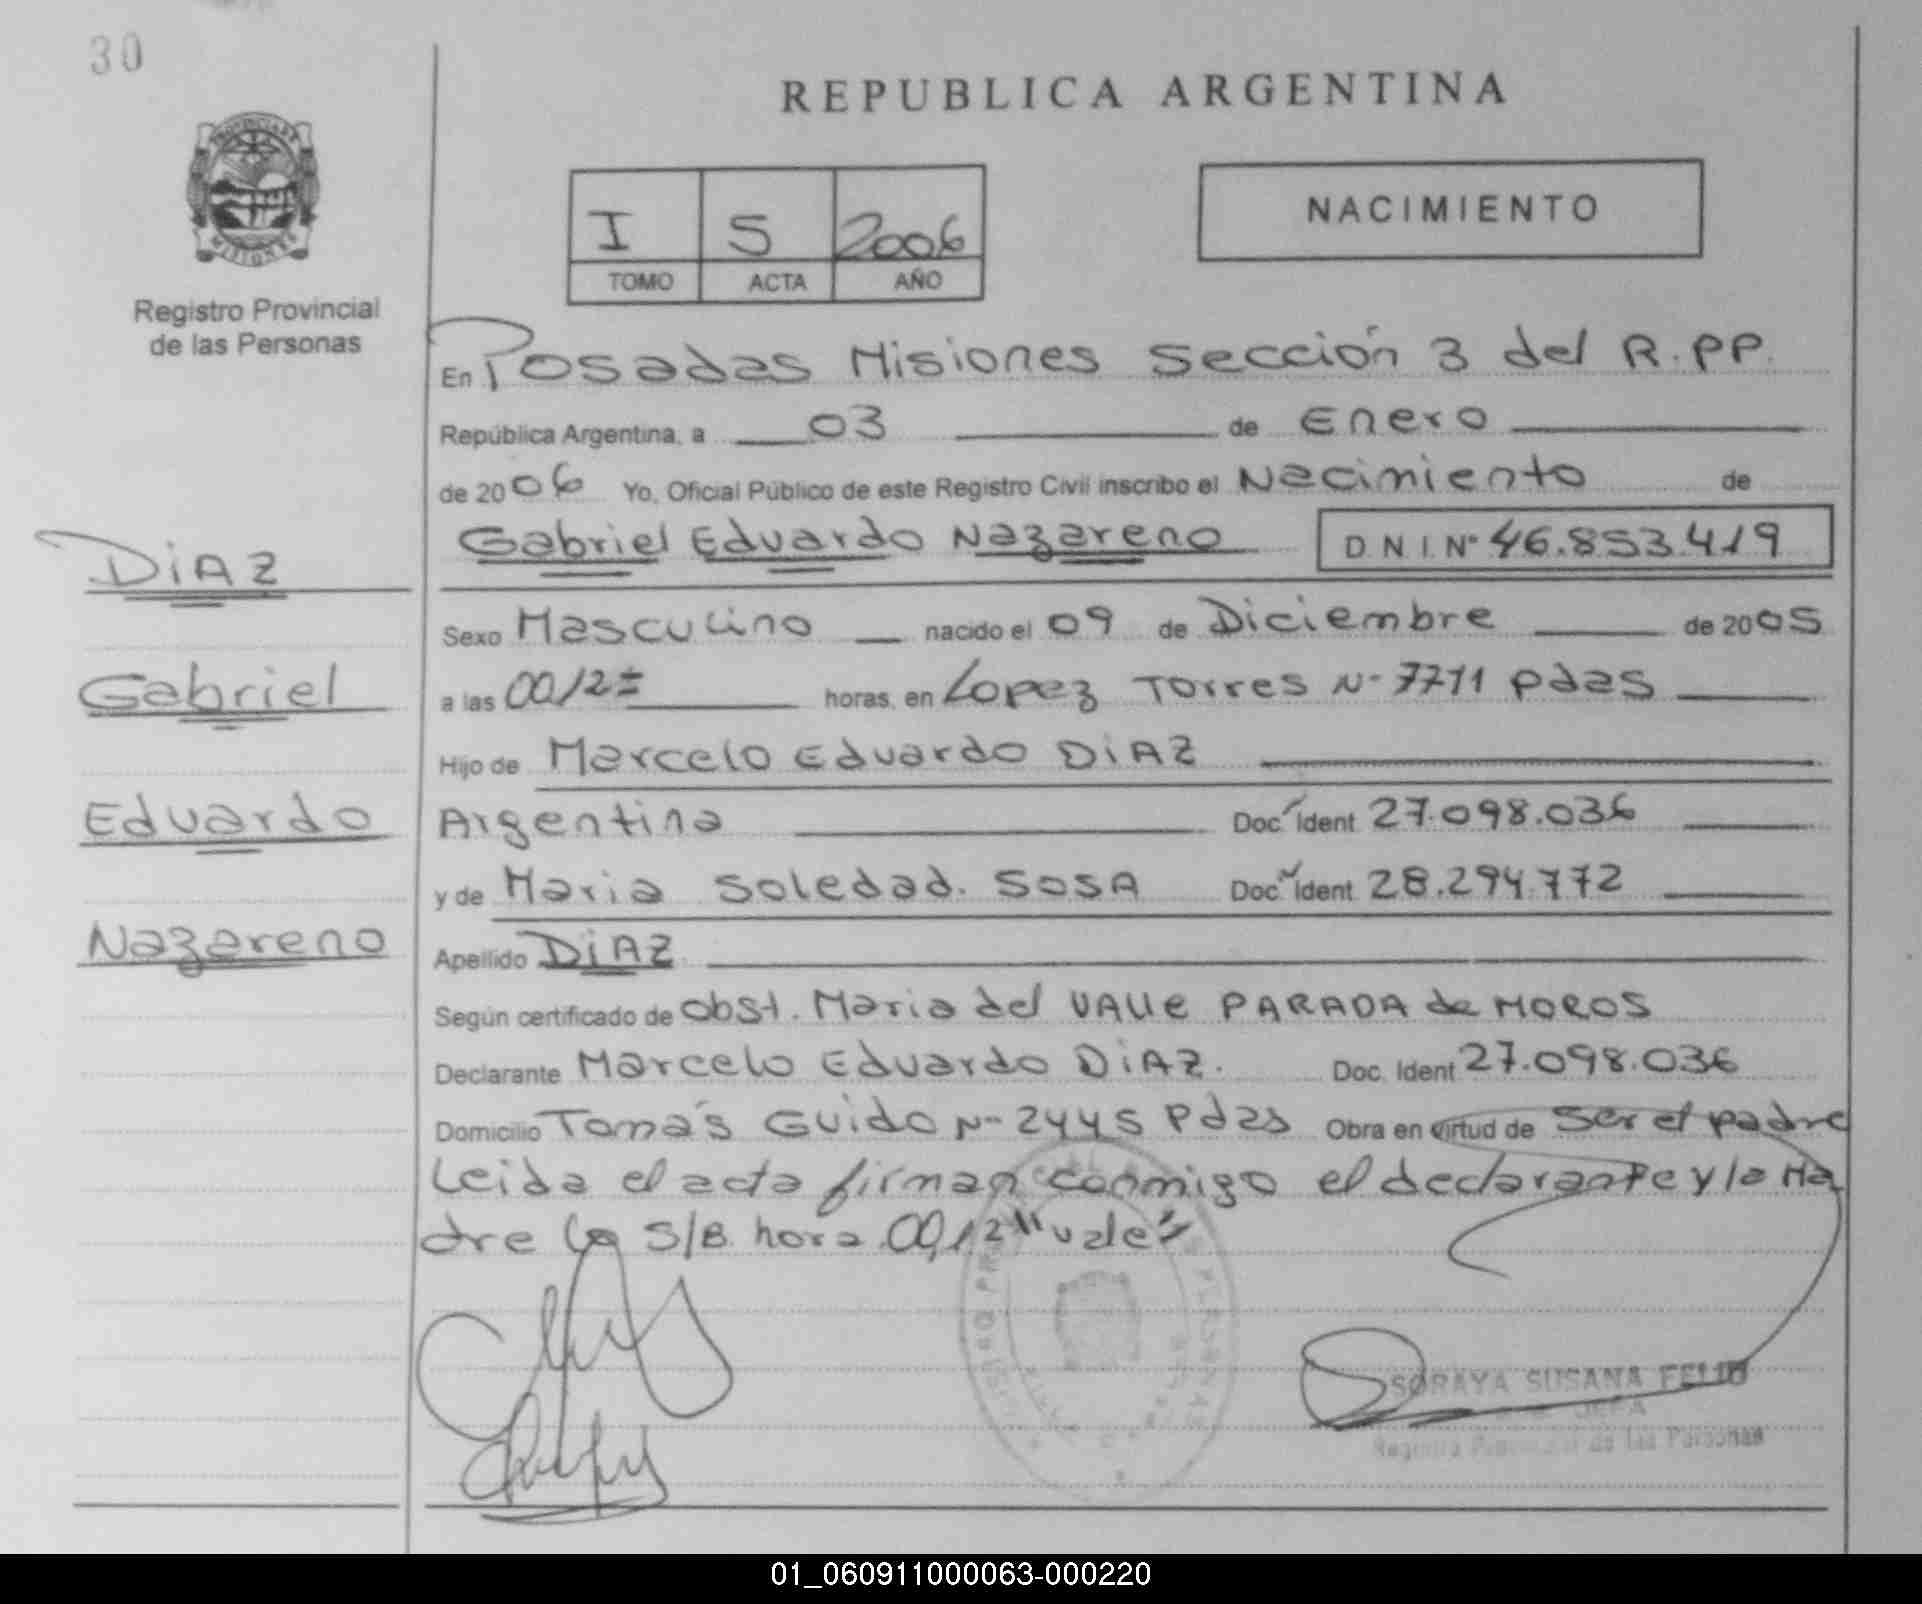 30
REPUBLICA ARGENTINA
NACIMIENTO
I S 2006
TOMO ACTA AÑO
Registro Provincial
de las Personas
En Posadas Misiones Sección 3 del R.PP.
República Argentina, a 03 de Enero
de 2006 Yo, Oficial Público de este Registro Civil inscribo el Nacimiento de
Gabriel Eduardo Nazareno D.N.I. Nº 46.853.419
DiAZ
Gabriel
Eduardo
Nazareno
Sexo Masculino nacido el 09 de Diciembre de 2005
a las 00/12 horas, en Lopez Torres Nº 7711 Pdas
Hijo de Marcelo Eduardo DiAZ
Argentina Doc. Ident. 27.098.036
y de Maria Soledad. SOSA Doc. Ident. 28.294.772
Apellido DiAZ
Según certificado de Obst. Maria del VAlle PARADA de MOROS
Declarante Marcelo Eduardo DiAZ. Doc. Ident. 27.098.036
Domicilio Tomás Guido Nº 2445 Pdas Obra en virtud de Ser el padre
Leida el acta firman conmigo el declarante y la Ma
dre S/B. hora 00,12 "vale"
SORAYA SUSANA
JEFA
Registro Provincial de las Personas
01_060911000063-000220